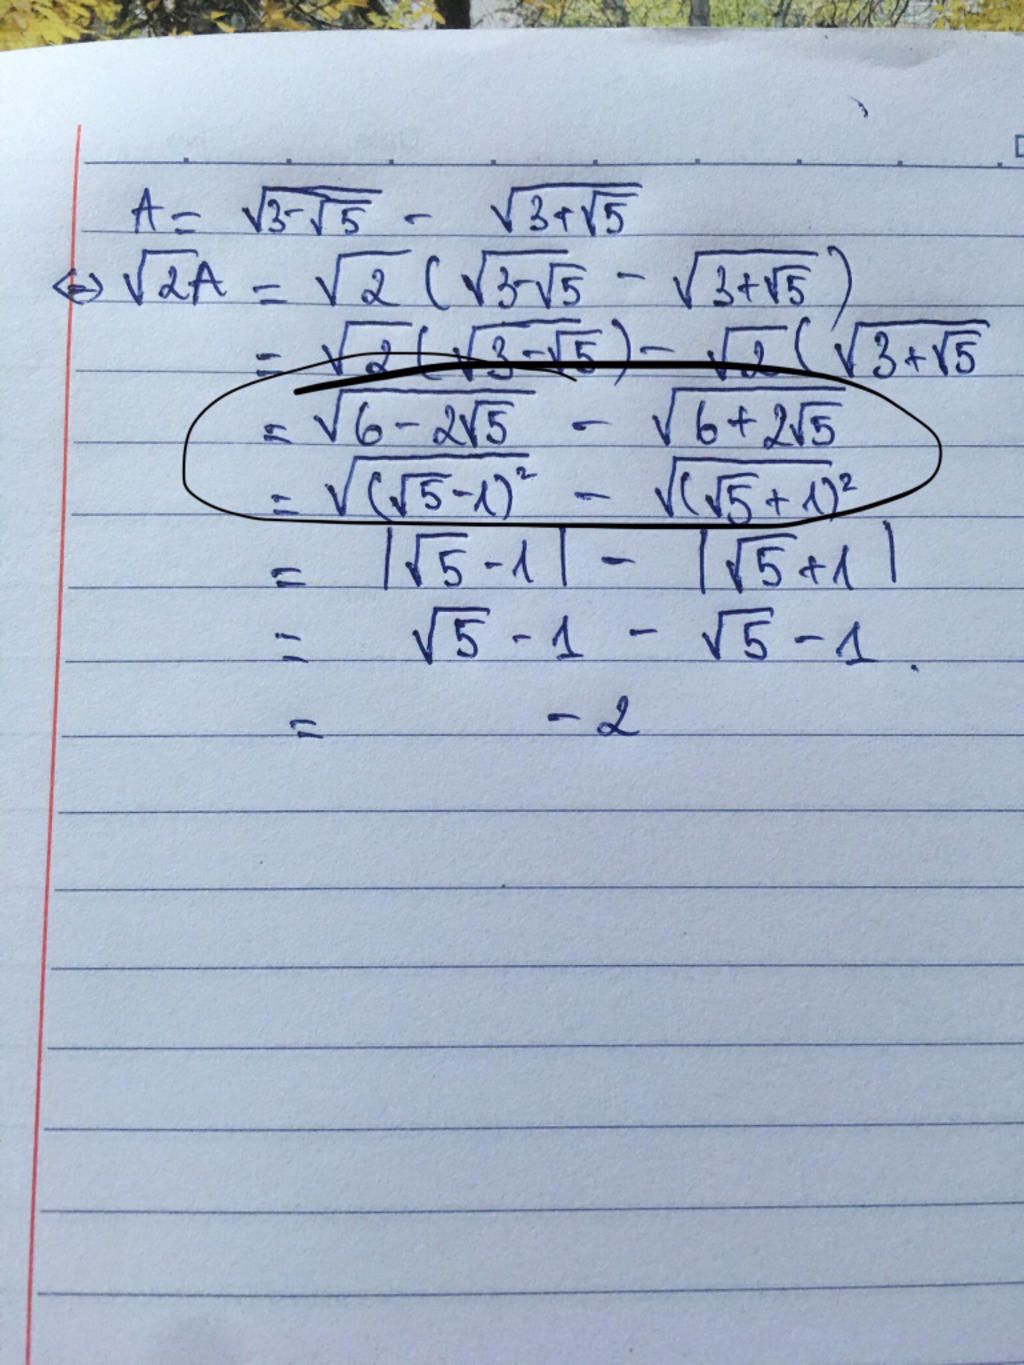 A = √(3-√5) - √(3+√5)
<=> √2A = √2 (√(3-√5) - √(3+√5))
= √2 (√(3-√5)) - √2 (√(3+√5)
= √(6-2√5) - √(6+2√5)
= √((√5-1)²) - √((√5+1)²)
= |√5-1| - |√5+1|
= √5 - 1 - √5 - 1 .
= -2